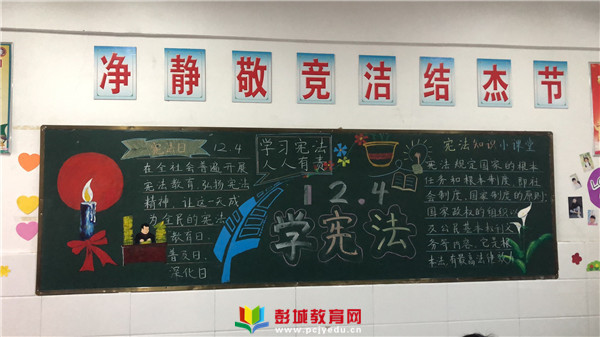 净 静 敬 竞 洁 结 杰 节
宪法日 12.4
在全社会普遍开展
宪法教育,弘扬宪法
精神,让这一天成
为全民的宪法
教育日、
普及日、
深化日
学习宪法
人人有责
12.4
学宪法
宪法知识小课堂
宪法规定国家的根本
任务和根本制度,即社
会制度、国家制度的原则
国家政权的组织
及公民基本权利义
务等内容,
彭城教育网
www.pcjyedu.cn